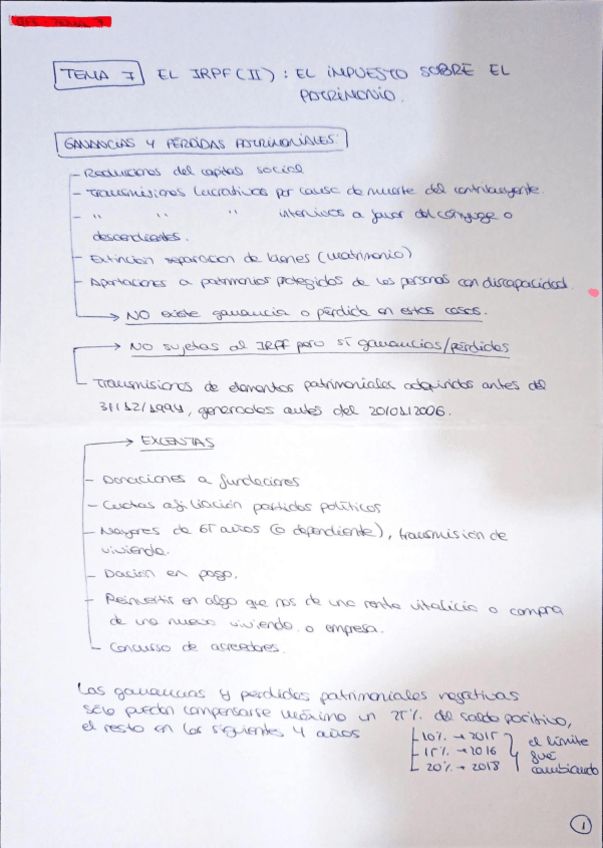 TEMA 7 EL IRPF (II): EL IMPUESTO SOBRE EL
PATRIMONIO.
GANANCIAS Y PÉRDIDAS PATRIMONIALES:
- Reducciones del capital social
- Transmisiones lucrativas por causa de muerte del contribuyente.
- " " " intervivos a favor del cónyuge o
descendientes.
- Extinción separación de bienes (matrimonio)
- Aportaciones a patrimonios protegidos de las personas con discapacidad.
→ NO existe ganancia o pérdida en estos casos.
→ NO sujetas al IRPF pero sí ganancias/pérdidas
Transmisiones de elementos patrimoniales adquiridos antes del
31/12/1994, generados antes del 20/01/2006.
→ EXENTAS
- Donaciones a fundaciones
- Cuotas afiliación partidos políticos
- Mayores de 65 años (o dependiente), transmisión de
vivienda.
- Dación en pago.
- Reinvertir en algo que nos de una renta vitalicia o compra
de una nueva vivienda o empresa.
- Concurso de acreedores.
Las ganancias y perdidas patrimoniales negativas
sólo pueden compensarse máximo un 25% del saldo positivo,
el resto en los siguientes 4 años
10% → 2015
15% → 2016
20% → 2018
el límite
fue
cambiando
1